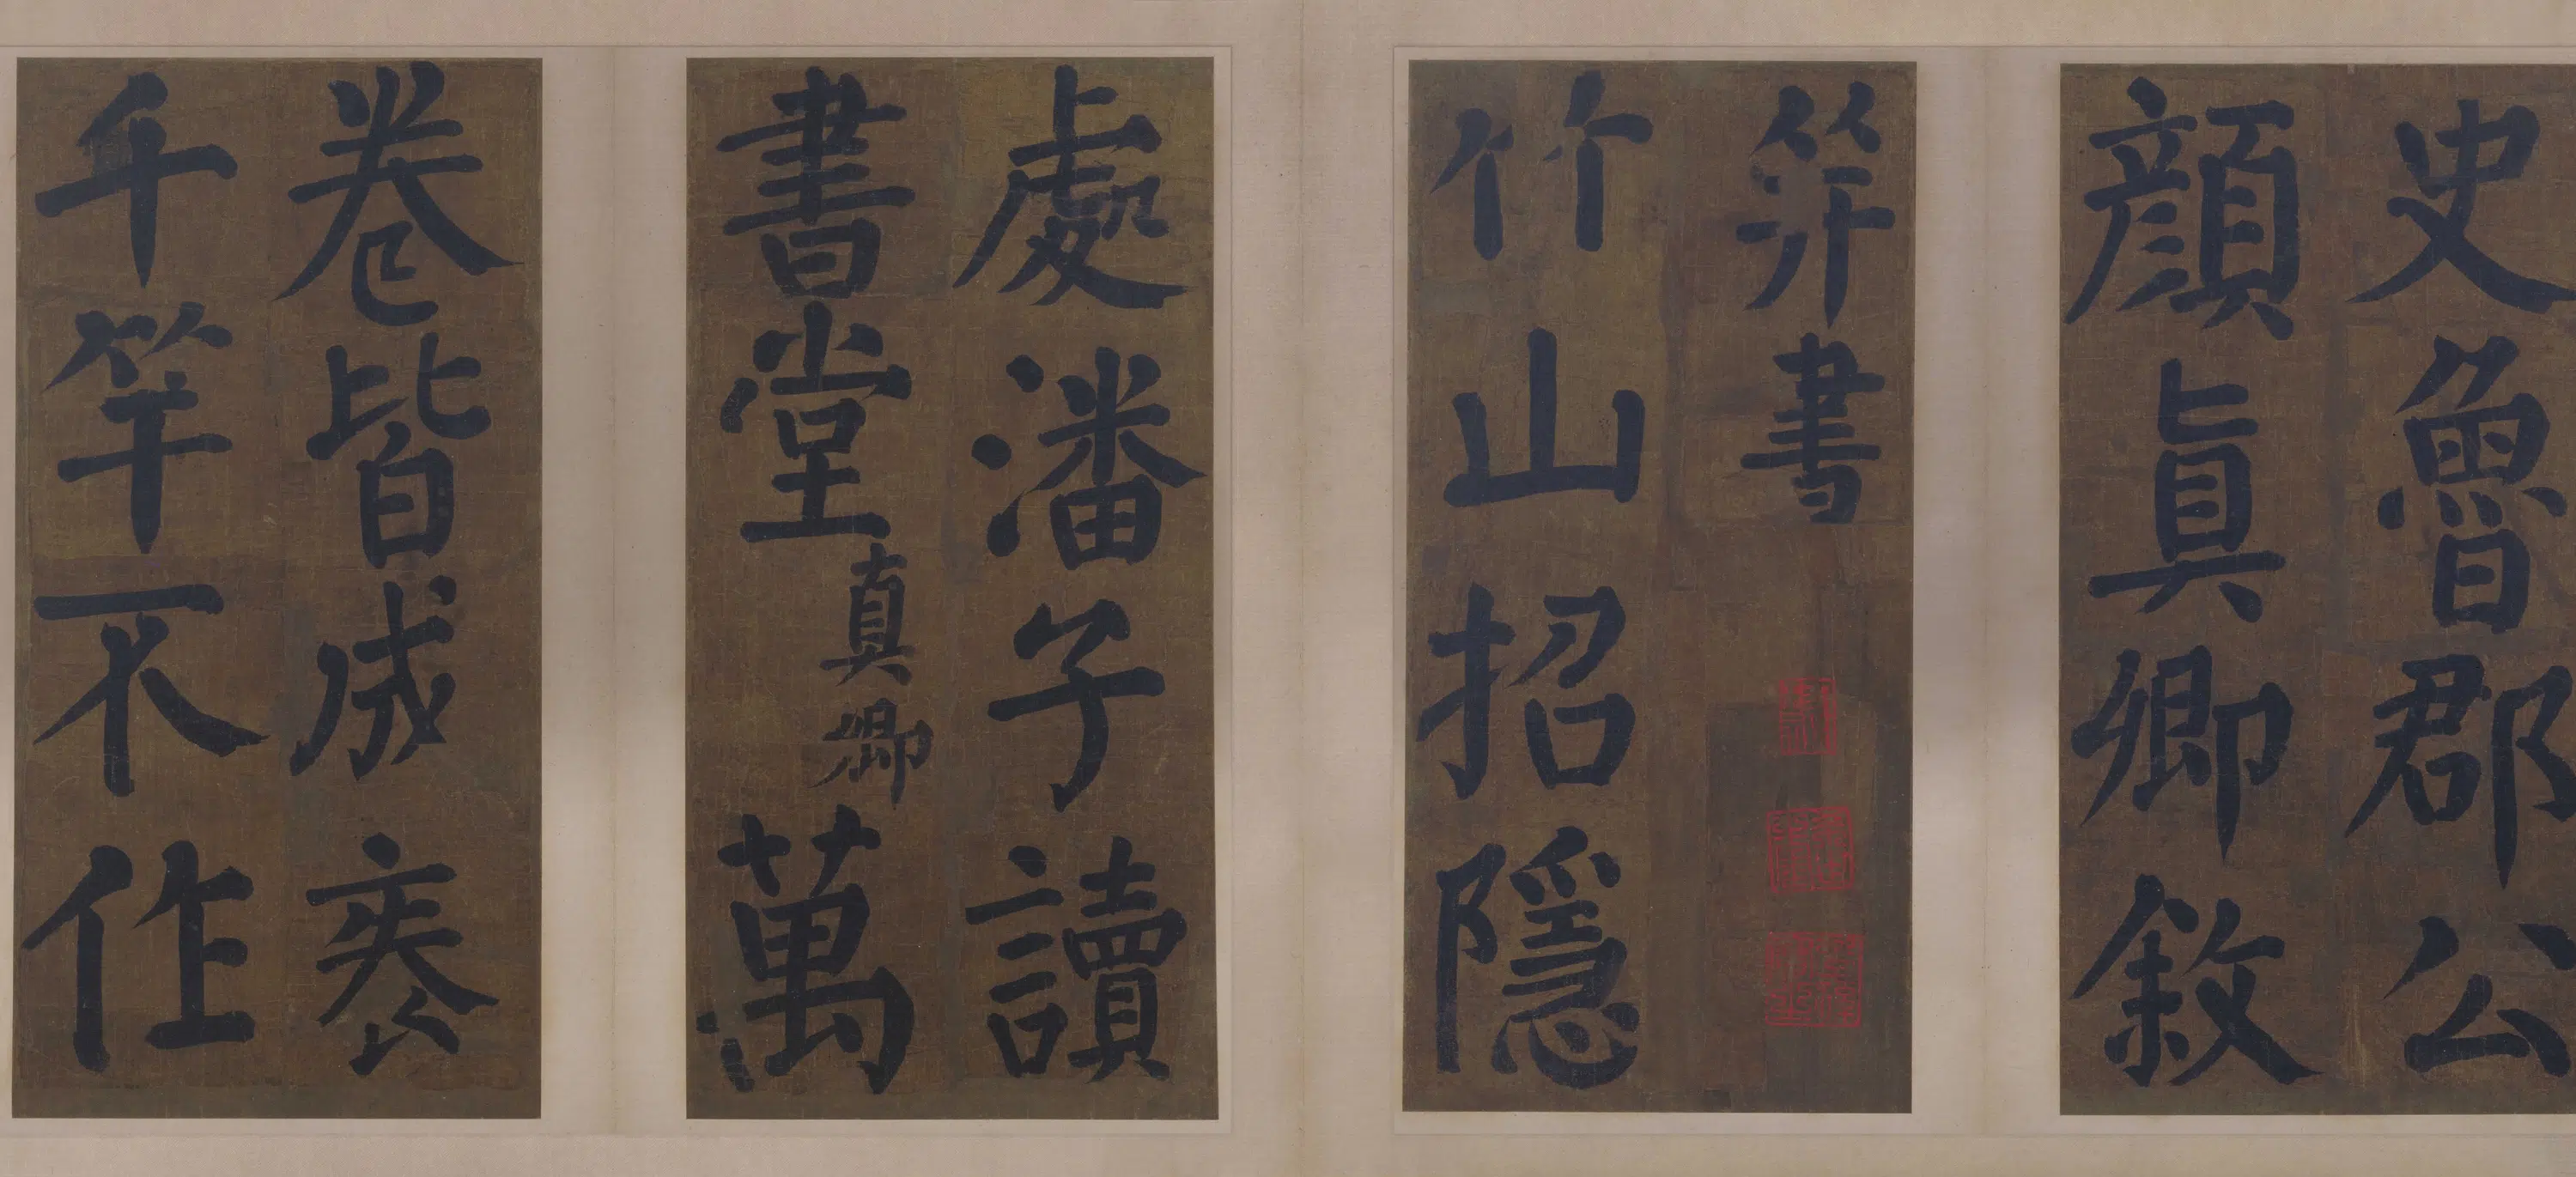 史魯郡公
顏真卿敘
并書
竹山招隱
處潘子讀
書堂真卿萬
卷皆成袠
千竿不作